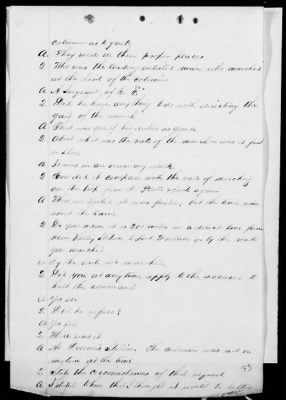 column as to gait
A. They were in their proper places
Q Who was the leading enlisted man who marched
at the head of the column
A. A Sergeant, of Co. E.
Q Did he have any thing to do with dictating the
gait of the march
A. That was one of his duties as guide
Q About what was the rate of the march was it fast
or slow
A. It was in an ordinary walk
Q How did it compare with the rate of marching
on the trip from the Platte back again
A. When we started it was faster, but the time was
about the same
Q Do you mean it is 200 miles in a direct line from
to Fort Wallace or by the route
you marched
A By the route we marched
Q Did you at any time apply to the accused to
halt the command
A Yes sir
Q Did he refuse?
A Yes sir
Q Where was it
A. At Downer's Station. The column was not in
motion at the time
Q State the circumstances of that request
A. I stated I thought it would be better